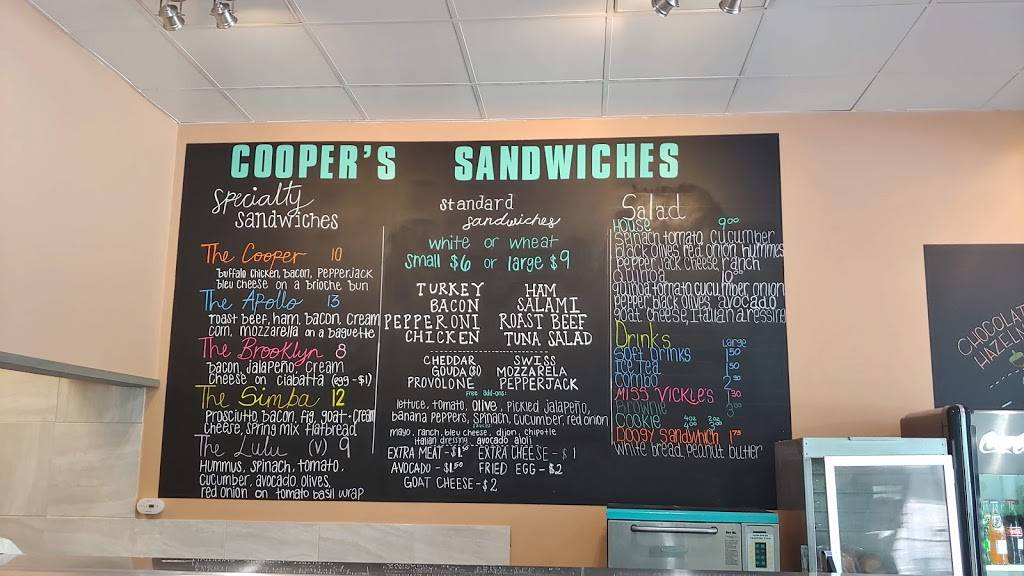 COOPER'S SANDWICHES
specialty
sandwiches
The Cooper 10
buffalo chicken, bacon, pepperjack
bleu cheese on a brioche bun
The Apollo 13
roast beef, ham, bacon, cream
corn, mozzarella on a baguette
The Brooklyn 8
bacon, jalapeño, cream
cheese on ciabatta (egg - $1)
The Simba 12
prosciutto, bacon, fig, goat-cream
cheese, spring mix flatbread
The Lulu (V) 9
Hummus, spinach, tomato,
cucumber, avocado, olives,
red onion on tomato basil wrap
standard
sandwiches
white or wheat
small $6 or large $9
TURKEY HAM
BACON SALAMI
PEPPERONI ROAST BEEF
CHICKEN TUNA SALAD
CHEDDAR SWISS
GOUDA ($1) MOZZARELA
PROVOLONE PEPPERJACK
Free add-ons:
lettuce, tomato, olive, pickled jalapeño,
banana peppers, spinach, cucumber, red onion
mayo, ranch, bleu cheese, dijon, chipotle
italian dressing avocado aioli
EXTRA MEAT - $1.50 EXTRA CHEESE - $1
AVOCADO - $1.50 FRIED EGG - $2
GOAT CHEESE - $2
Salad
House 9.00
spinach, tomato, cucumber
black olives, red onion, hummes
pepper jack cheese, ranch
quinoa
quinoa, tomato, cucumber, onion
pepper, black olives, avocado
goat cheese, italian dressing
Drinks Large
soft drinks 1.50
iced tea
MISS VICKIE'S
BROWNIE
COOKIE
DOGGY SANDWICH
white bread, peanut butter
CHOCOLAT
HAZELN
Coca-Co